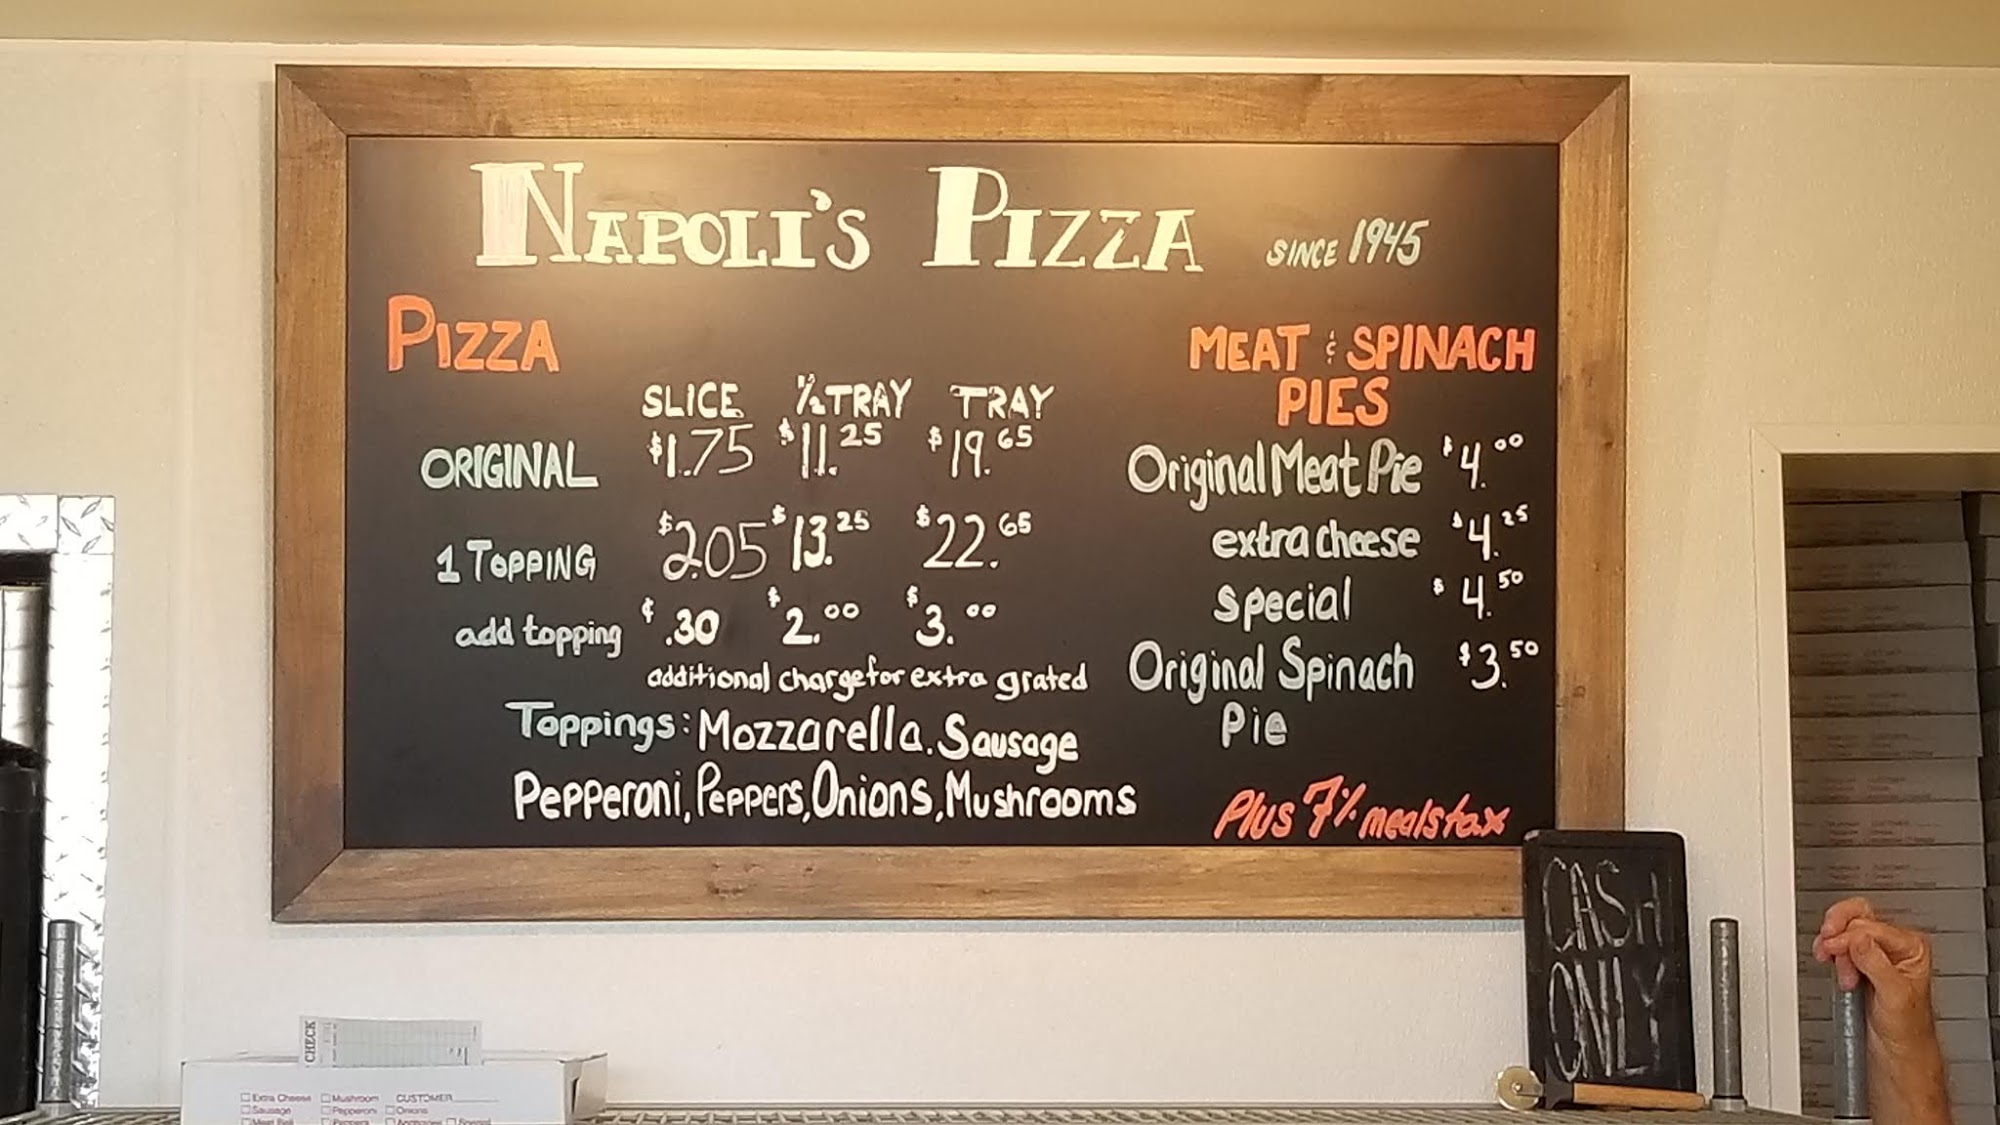 NAPOLI'S PIZZA SINCE 1945
PIZZA
SLICE ½ TRAY TRAY
ORIGINAL $1.75 $11.25 $19.65
1 TOPPING $2.05 $13.25 $22.65
add topping ¢.30 $2.00 $3.00
additional charge for extra grated
Toppings: Mozzarella. Sausage
Pepperoni, Peppers, Onions, Mushrooms
MEAT & SPINACH
PIES
Original Meat Pie $4.00
extra cheese $4.25
special $4.50
Original Spinach $3.50
Pie
Plus 7% meals tax
CASH
ONLY
CHECK
Extra Cheese Mushroom CUSTOMER
Sausage Pepperoni Onions
Peppers Anchovies Special